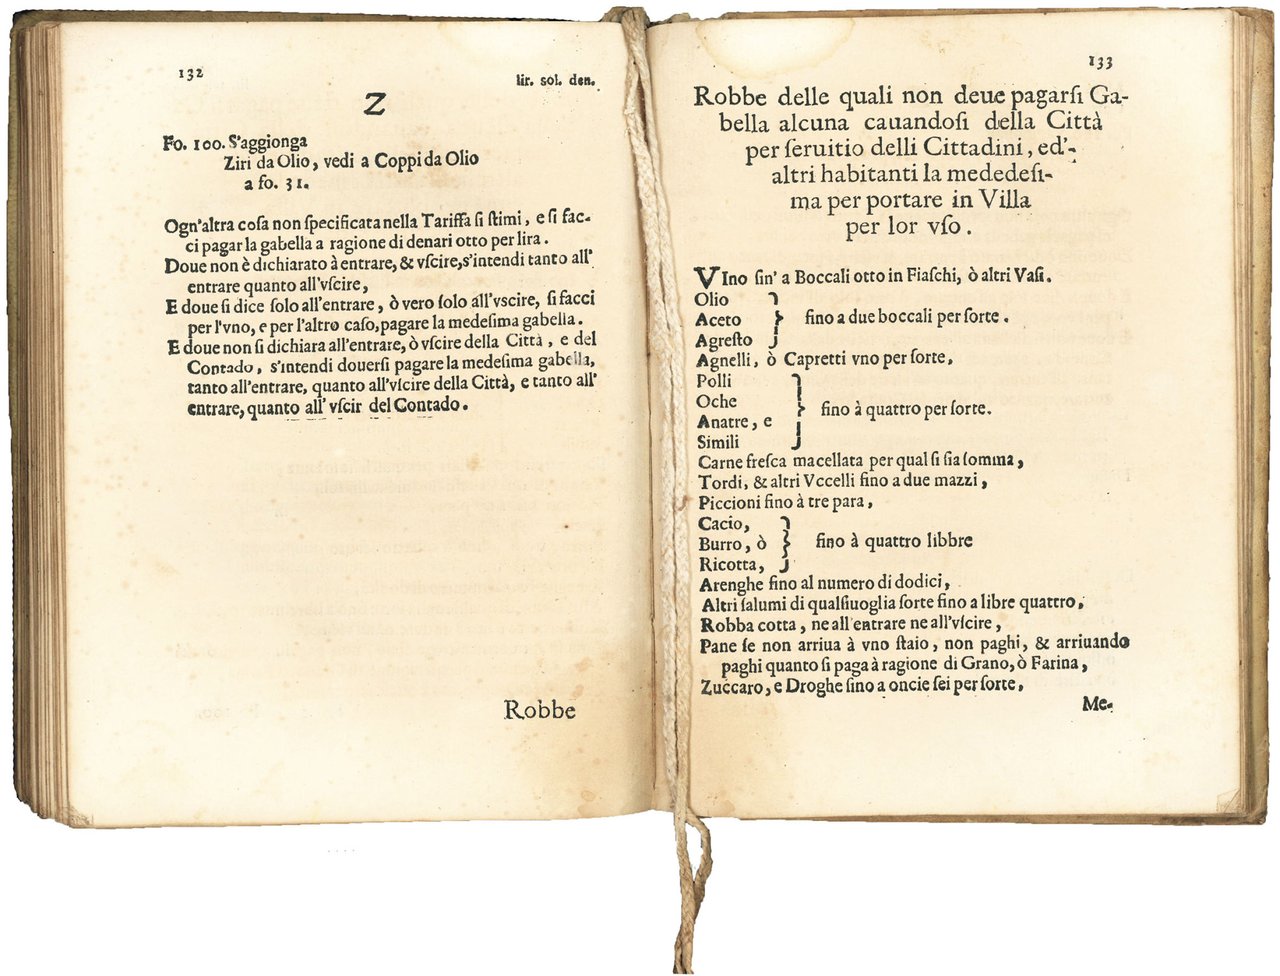 132
lir. sol. den.
Z
Fo. 100. S'aggionga
Ziri da Olio, vedi a Coppi da Olio
a fo. 31.
Ogn'altra cosa non ſpecificata nella Tariffa ſi ſtimi, e ſi fac-
ci pagar la gabella a ragione di denari otto per lira.
Doue non è dichiarato à entrare, & vſcire, s'intendi tanto all'
entrare quanto all'vſcire,
E doue ſi dice ſolo all'entrare, ò vero ſolo all'vscire, ſi facci
per l'vno, e per l'altro caſo, pagare la medeſima gabella.
E doue non ſi dichiara all'entrare, ò vſcire della Città, e del
Contado, s'intendi douerſi pagare la medeſima gabella,
tanto all'entrare, quanto all'vſcire della Città, e tanto all'
entrare, quanto all' vſcir del Contado.
Robbe
133
Robbe delle quali non deue pagarſi Ga-
bella alcuna cauandoſi della Città
per ſeruitio delli Cittadini, ed'-
altri habitanti la mededeſi-
ma per portare in Villa
per lor vſo.
VIno ſin' a Boccali otto in Fiaſchi, ò altri Vaſi.
Olio
Aceto } fino a due boccali per ſorte.
Agreſto
Agnelli, ò Capretti vno per ſorte,
Polli
Oche
Anatre, e } fino à quattro per ſorte.
Simili
Carne freſca macellata per qual ſi ſia ſomma,
Tordi, & altri Vccelli fino a due mazzi,
Piccioni fino à tre para,
Cacio,
Burro, ò } fino à quattro libbre
Ricotta,
Arenghe fino al numero di dodici,
Altri ſalumi di qualſiuoglia ſorte fino a libre quattro,
Robba cotta, ne all'entrare ne all'vſcire,
Pane ſe non arriua à vno ſtaio, non paghi, & arriuando
paghi quanto ſi paga à ragione di Grano, ò Farina,
Zuccaro, e Droghe ſino a oncie ſei per ſorte,
Me-